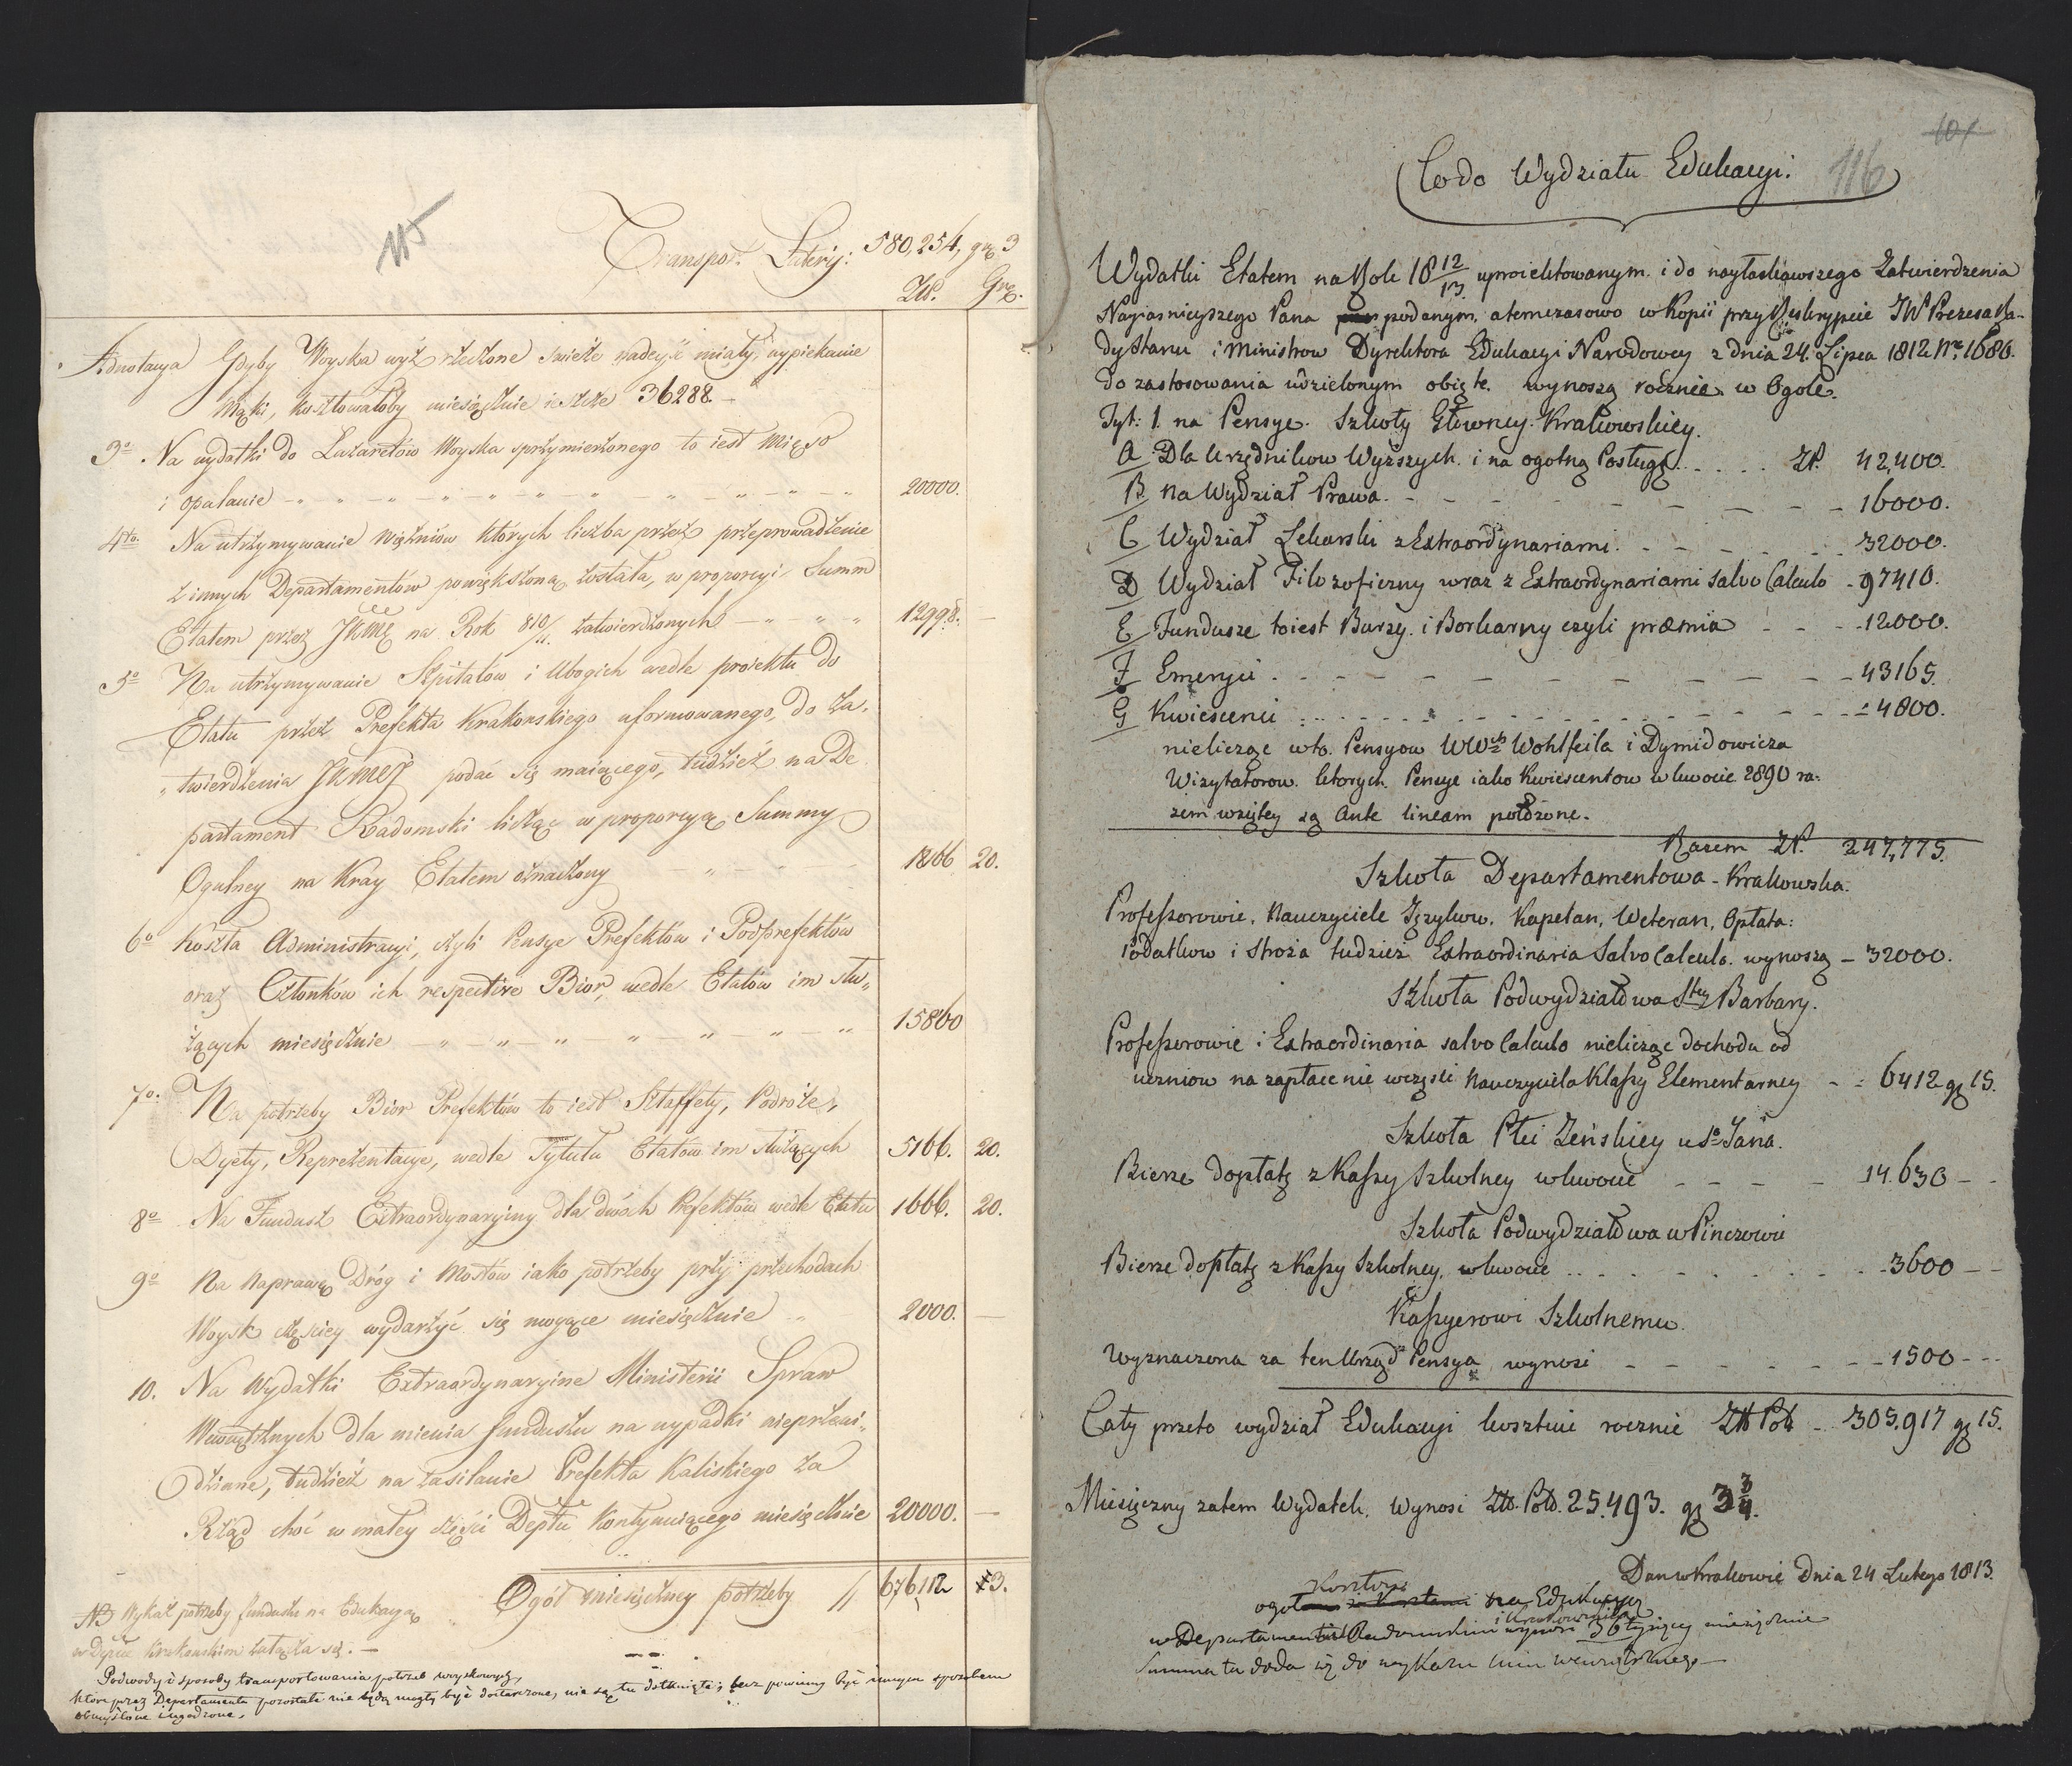 115
Transpor. Lateris: 580,254, grz 3
Złł. Grz.
Adnotacya Gdyby Woyska wyż rzeczone świeże nadeyść miały, wypiekanie
Mąki, kosztowałoby miesięcznie ieszcze 36288.—
3o Na wydatki do Lazaretów Woyska sprzymierzonego to iest Mięso
i opalanie 20000.
4to. Na utrzymywanie więźniów których liczba przez przeprowadzenie
z innych Departamentów powiększoną została, w proporcyi Summ
Etatem przez JKMć na Rok 810/11. zatwierdzonych 12998.
5o Na utrzymywanie Szpitalów i Ubogich wedle proiektu do
Etatu przez Prefekta Krakowskiego uformowanego, do Za-
twierdzenia JKMCJ podać się maiącego, tudzież na De
partament Radomski licząc w proporcyą Summy
Ogulney na Kray Etatem oznaczony 1866 20.
6o Koszta Administracyi, czyli Pensye Prefektów i Podprefektów
oraz Członków ich respective Bior, wedle Etatów im słu„
żących miesięcznie 15860
7o. Na potrzeby Bior Prefektów to iest Sztaffety, Podróże,
Dyety, Reprezentacye, wedle Tytułu Etatów im służących 5166. 20.
8o Na Fundusz Extraordynaryiny dla dwóch Prefektów wedle Etatu 1666. 20.
9o Na Naprawę Dróg i Mostów iako potrzeby przy przechodach
Woysk częściey wydarzyć się mogące miesięcznie 2000.
10. Na Wydatki Extraordynaryine Ministerii Spraw
Wewnętrznych dla mienia funduszu na wypadki nieprzewi„
dziane, tudzież na zasilanie Prefekta Kaliskiego za
Rząd choć w małey części Deptu kontynuiącego miesięcznie 20000.
Ogół miesięczney potrzeby 676,112 3.
NB Wykaz potrzeby funduszu na Edukacyą
w Depcie Krakowskim załącza się. —
Podwody i sposoby transportowania potrzeb woyskowych,
które przez Departamenta pozostałe nie będą mogły być dostarczone, nie są tu dotknięte, lecz powinny być innym sposobem
obmyślone i ugodzone.
101
116
Co do Wydziału Edukacyi.
Wydatki Etatem na Rok 18 12/13 uproiektowanym. i do nayłaskawszego Zatwierdzenia
Nayiasnieyszego Pana podanym, a temczasowo w Kopii przy Reskrypcie JW Prezesa Ra-
dy Stanu i Ministrow Dyrektora Edukacyi Narodowey z dnia 24. Lipca 1812 Nro. 1686.
do zastosowania udzielonym obięte. wynoszą rocznie w Ogole.
Tyt: 1. na Pensye. Szkoły Głowney Krakowskiey.
A Dla Urzędnikow Wyższych. i na ogolną Posługę Zł. 42,400.
B Na Wydział Prawa. 16000.
C Wydział Lekarski z Extraordynariami. 32000.
D Wydział Filozoficzny wraz z Extraordynariami salvo Calculo 97410.
E Fundusze to iest Bursy. i Borkarny czyli præmia 12000.
F Emeryci 43165.
G Kwiescenci 4800.
nielicząc w to. Pensyow WWch Wohlfeila i Dymidowicza
Wizytatorow. ktorych Pensye iako Kwiescentow w kwocie 2890 ra-
zem wziętey są ante lineam położone.
Razem Zł. 247,775.
Szkoła Departamentowa Krakowska.
Professorowie, Nauczyciele Języków. Kapelan, Weteran, Opłata:
Podatkow i Stroża tudzież Extraordinaria Salvo Calculo. wynoszą 32000.
Szkoła Podwydziałowa Stey Barbary.
Professorowie i Extraordinaria salvo Calculo nielicząc dochodu od
uczniow na zapłacenie części Nauczyciela Klassy Elementarney 6412 gr 15.
Szkoła Płci Zeńskiey u So Jana.
Bierze dopłatę z Kassy Szkolney w kwocie 14.630
Szkoła Podwydziałowa w Pinczowie
Bierze dopłatę z Kassy Szkolney, w kwocie 3600
Kassyerowi Szkolnemu.
Wyznaczona za ten Urząd Pensya wynosi 1500
Cały przeto wydział Edukacyi kosztuie rocznie Złł Pol 305.917 gr 15.
Miesięczny zatem Wydatek, wynosi Złł. Pols. 25.493. gr 3 3/4.
Dan w Krakowie Dnia 24 Lutego 1813.
ogoł na Edukacyą
w Departamentu Radomskim i Krakowskim wynosi 36 tysięcy miesięcznie
Summa ta doda się do wykazu Min wewnętrznego